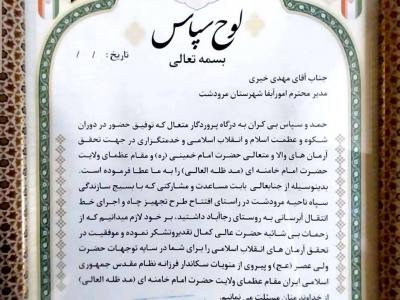 لوح سپاس
بسمه تعالی
تاریخ : / /
جناب آقای مهدی خیری
مدیر محترم امورآبفا شهرستان مرودشت
حمد و سپاس بی کران به درگاه پروردگار متعال که توفیق حضور در دوران
شکوه و عظمت اسلام و انقلاب اسلامی و خدمتگزاری در جهت تحقق
آرمان های والا و متعالی حضرت امام خمینی (ره) و مقام عظمای ولایت
حضرت امام خامنه ای (مد ظله العالی) را به ما عطا فرموده است.
بدینوسیله از جنابعالی بابت مساعدت و مشارکتی که با بسیج سازندگی
سپاه ناحیه مرودشت در راستای افتتاح طرح تجهیز چاه و اجرای خط
انتقال آبرسانی به روستای رجاآباد داشتید، بر خود لازم میدانیم که از
زحمات بی شائبه حضرت عالی کمال تقدیروتشکر نموده و موفقیت در
تحقق آرمان های انقلاب اسلامی را برای شما در سایه توجهات حضرت
ولی عصر (عج) و پیروی از منویات سکاندار فرزانه نظام مقدس جمهوری
اسلامی ایران مقام عظمای ولایت حضرت امام خامنه ای (مد ظله العالی)
از خداوند منان مسئلت می نمائیم.